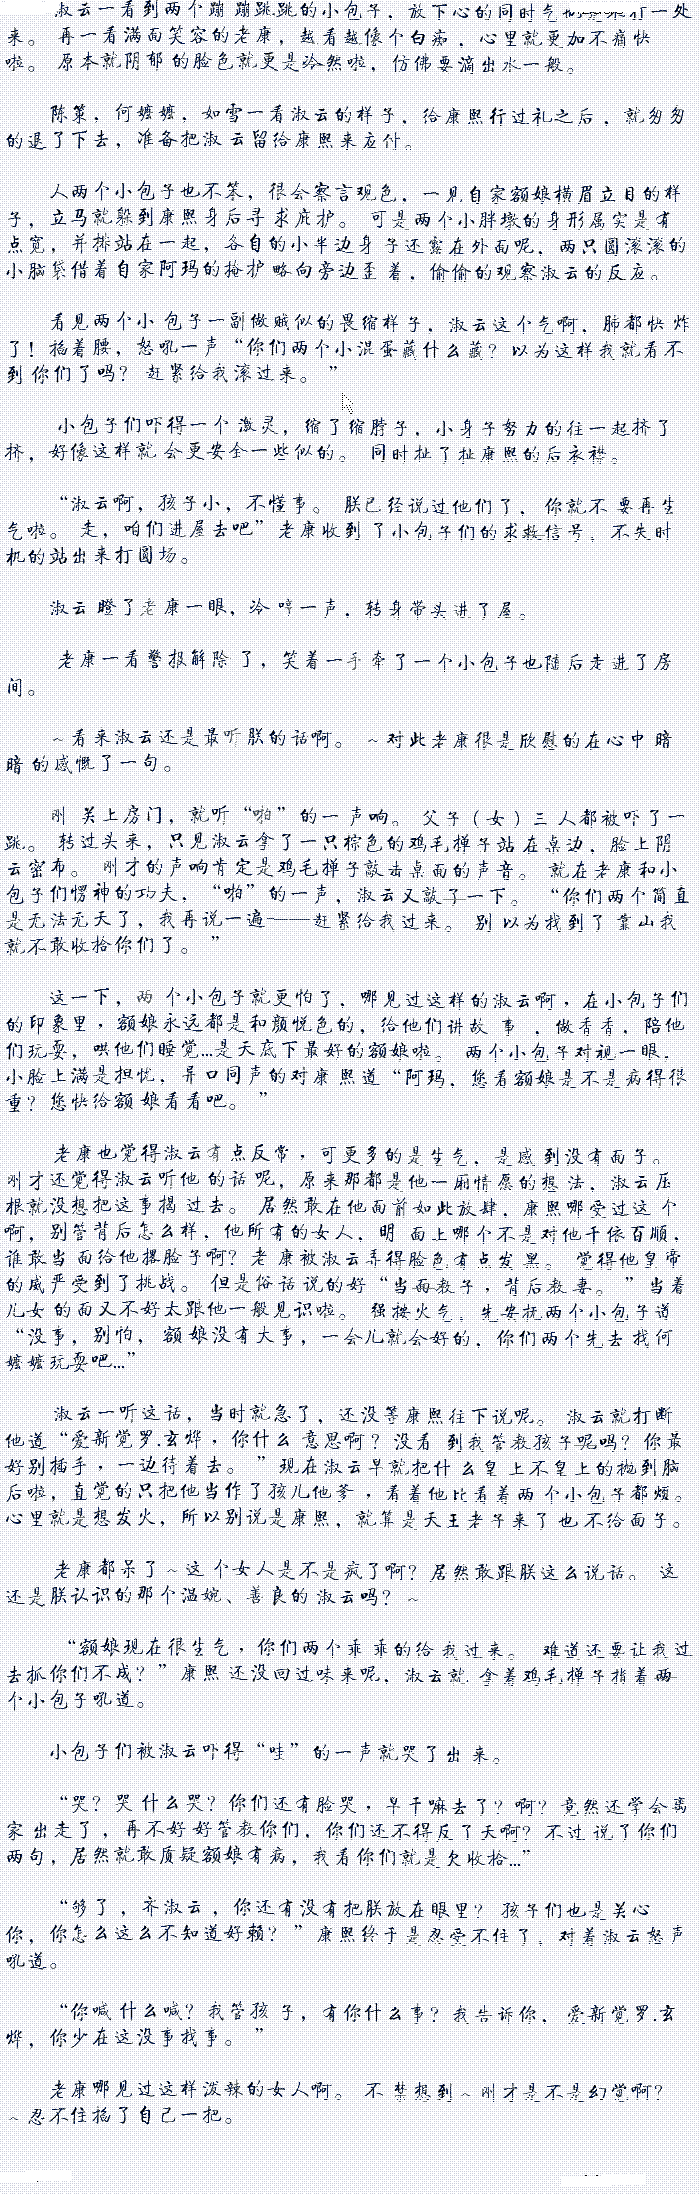 淑云一看到两个蹦蹦跳跳的小包子，放下心的同时气
来。再一看满面笑容的老康，越看越像个白痴，心里就更加不痛快
啦。原本就阴郁的脸色就更是冷然啦，仿佛要滴出水一般。
陈策，何嬷嬷，如雪一看淑云的样子，给康熙行过礼之后，就匆匆
的退了下去，准备把淑云留给康熙来应付。
人两个小包子也不笨，很会察言观色，一见自家额娘横眉立目的样
子，立马就躲到康熙身后寻求庇护。可是两个小胖墩的身形属实是有
点宽，并排站在一起，各自的小半边身子还露在外面呢，两只圆滚滚的
小脑袋借着自家阿玛的掩护略向旁边歪着，偷偷的观察淑云的反应。
看见两个小包子一副做贼似的畏缩样子，淑云这个气啊，肺都快炸
了！掐着腰，怒吼一声“你们两个小混蛋藏什么藏？以为这样我就看不
到你们了吗？赶紧给我滚过来。”
小包子们吓得一个激灵，缩了缩脖子，小身子努力的往一起挤了
挤，好像这样就会更安全一些似的。同时扯了扯康熙的后衣襟。
“淑云啊，孩子小，不懂事。朕已经说过他们了，你就不要再生
气啦。走，咱们进屋去吧”老康收到了小包子们的求救信号，不失时
机的站出来打圆场。
淑云瞪了老康一眼，冷哼一声，转身带头进了屋。
老康一看警报解除了，笑着一手牵了一个小包子也随后走进了房
间。
～看来淑云还是最听朕的话啊。～对此老康很是欣慰的在心中暗
暗的感慨了一句。
刚关上房门，就听“啪”的一声响。父子（女）三人都被吓了一
跳。转过头来，只见淑云拿了一只棕色的鸡毛掸子站在桌边，脸上阴
云密布。刚才的声响肯定是鸡毛掸子敲击桌面的声音。就在老康和小
包子们愣神的功夫，“啪”的一声，淑云又敲了一下。“你们两个简直
是无法无天了，我再说一遍——赶紧给我过来。别以为找到了靠山我
就不敢收拾你们了。”
这一下，两个小包子就更怕了，哪见过这样的淑云啊，在小包子们
的印象里，额娘永远都是和颜悦色的，给他们讲故事，做香香，陪他
们玩耍，哄他们睡觉…是天底下最好的额娘啦。两个小包子对视一眼，
小脸上满是担忧，异口同声的对康熙道“阿玛，您看额娘是不是病得很
重？您快给额娘看看吧。”
老康也觉得淑云有点反常，可更多的是生气，是感到没有面子。
刚才还觉得淑云听他的话呢，原来那都是他一厢情愿的想法，淑云压
根就没想把这事揭过去。居然敢在他面前如此放肆，康熙哪受过这个
啊，别管背后怎么样，他所有的女人，明面上哪个不是对他千依百顺，
谁敢当面给他撂脸子啊？老康被淑云弄得脸色有点发黑。觉得他皇帝
的威严受到了挑战。但是俗话说的好“当面教子，背后教妻。”当着
儿女的面又不好太跟他一般见识啦。强按火气，先安抚两个小包子道
“没事，别怕，额娘没有大事，一会儿就会好的，你们两个先去找何
嬷嬷玩耍吧…”
淑云一听这话，当时就急了，还没等康熙往下说呢。淑云就打断
他道“爱新觉罗.玄烨，你什么意思啊？没看到我管教孩子呢吗？你最
好别插手，一边待着去。”现在淑云早就把什么皇上不皇上的抛到脑
后啦，直觉的只把他当作了孩儿他爹，看着他比看着两个小包子都烦。
心里就是想发火，所以别说是康熙，就算是天王老子来了也不给面子。
老康都呆了～这个女人是不是疯了啊？居然敢跟朕这么说话。这
还是朕认识的那个温婉、善良的淑云吗？～
“额娘现在很生气，你们两个乖乖的给我过来。难道还要让我过
去抓你们不成？”康熙还没回过味来呢，淑云就拿着鸡毛掸子指着两
个小包子吼道。
小包子们被淑云吓得“哇”的一声就哭了出来。
“哭？哭什么哭？你们还有脸哭，早干嘛去了？啊？竟然还学会离
家出走了，再不好好管教你们，你们还不得反了天啊？不过说了你们
两句，居然就敢质疑额娘有病，我看你们就是欠收拾…”
“够了，齐淑云，你还有没有把朕放在眼里？孩子们也是关心
你，你怎么这么不知道好赖？”康熙终于是忍受不住了，对着淑云怒声
吼道。
“你喊什么喊？我管孩子，有你什么事？我告诉你，爱新觉罗.玄
烨，你少在这没事找事。”
老康哪见过这样泼辣的女人啊。不禁想到～刚才是不是幻觉啊？
～忍不住掐了自己一把。